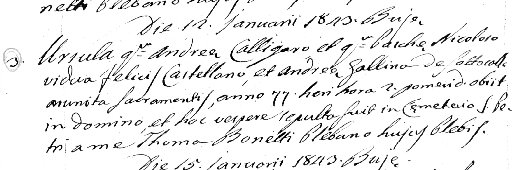 Die 12. Januarii 1843. Buje.
3. Ursula qr. Andrea Calligaro et qr. Nicoloso
vidua Felicis Castellano, et Andrea Gallina de
munita Sacramentis, anno 77. heri hora 2. pomerid. obiit
in domino et hoc vespere sepulta fuit in Cemeterio S. Pe-
tri a me Thoma Bonetti Plebano hujus Plebis.
Die 15. Januarii 1843. Buje.